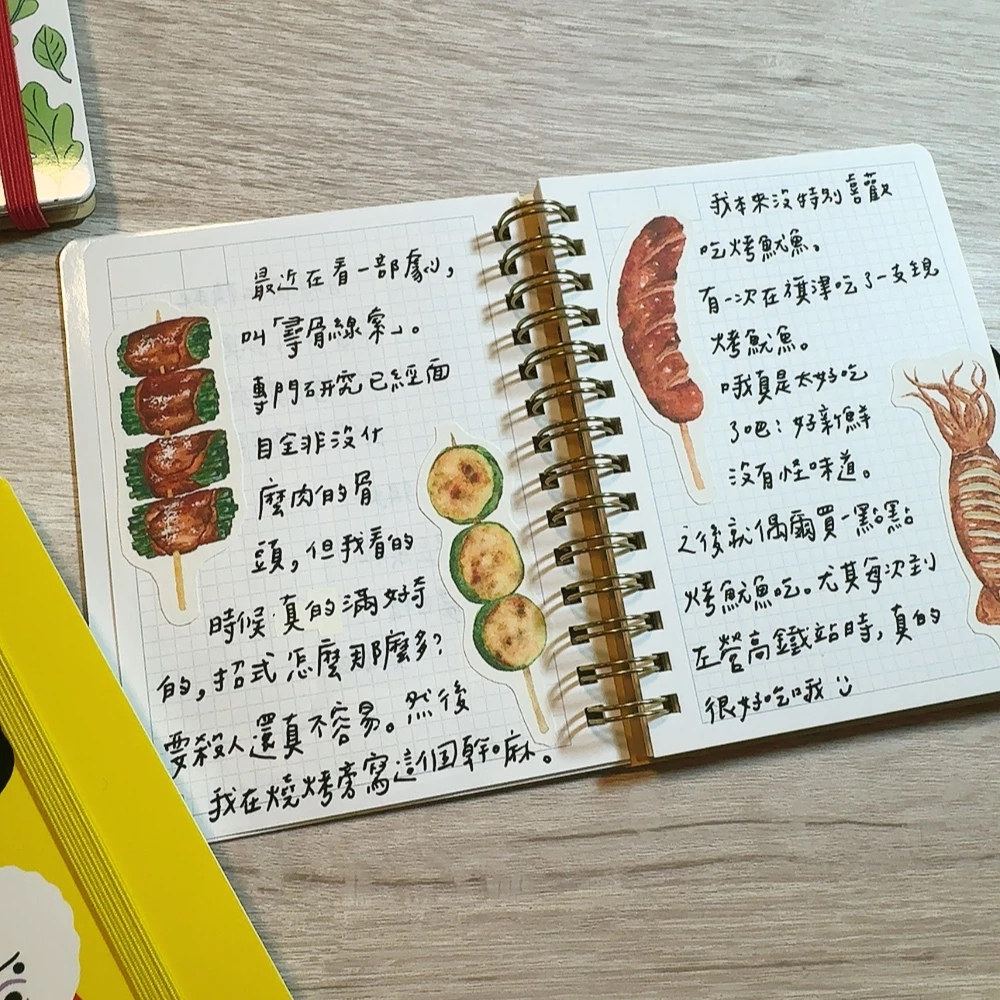 最近在看一部劇,
叫「尋骨線索」。
專門研究已經面
目全非沒什
麼肉的骨
頭,但我看的
時候真的滿好奇
的,招式怎麼那麼多?
要殺人還真不容易。然後
我在燒烤旁寫這個幹嘛。
我本來沒特別喜歡
吃烤魷魚。
有一次在旗津吃了一支現
烤魷魚。
哦真是太好吃
了吧!好新鮮
沒有怪味道。
之後就偶爾買一點點
烤魷魚吃。尤其每次到
左營高鐵站時,真的
很好吃哦